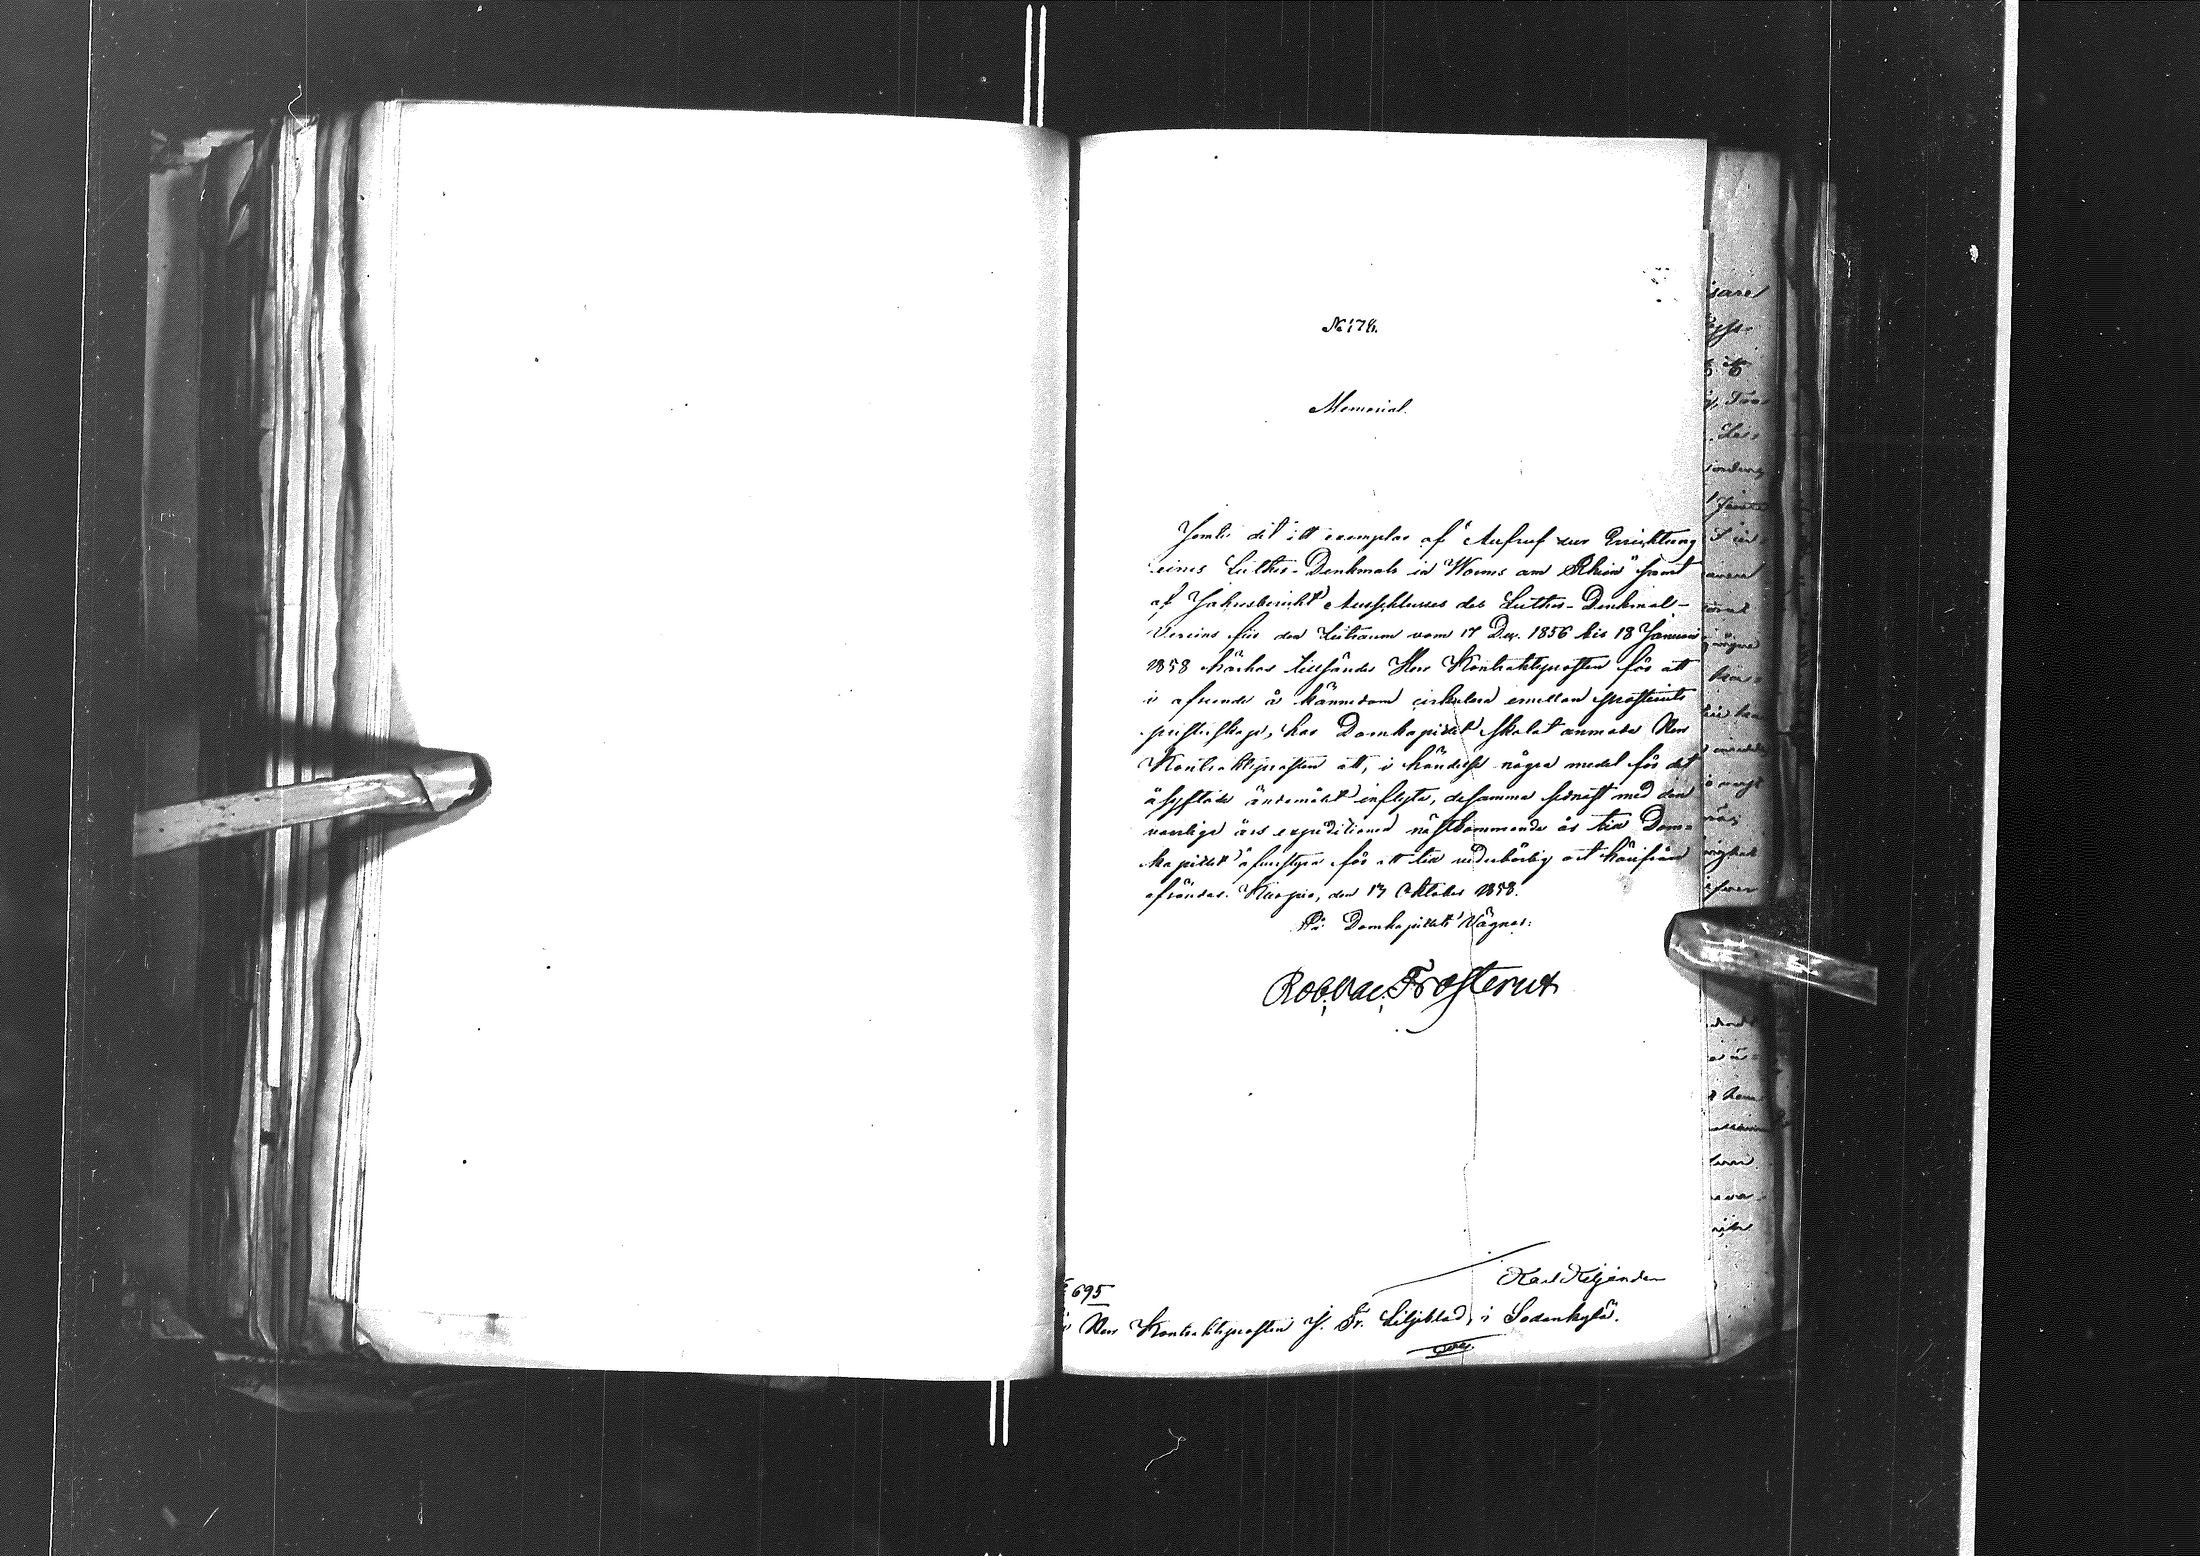 № 178.
Memorial.
Jemte det ett exemplar af "Aufruf zur Errichtung
eines Luther-Denkmals in Worms am Rhein" samt
af Jahresbericht Ausschlusses des Luther-Denkmal-
Vereins für den Zeitraum vom 17 Dez. 1856 bis 18 Januari
1858 härhos tillsändes Herr Kontraktsprosten för att
i afseende å kännedom cirkulera emellan prosteriets
presterskap, har Domkapitlet skolat anmoda Herr
Kontraktsprosten att, i händelse några medel för det
åsyftade ändamålet inflyta, desamma sednast med den
vanliga års expeditionen nästkommande år till Dom-
kapitlet afsestyra för att till vederbörlig ort härifrån
afsändas. Kuopio, den 13 Oktober 1858.
På Domkapitlets Vägnar:
Rob. Val. Frosterus
Karl Kiljander
695
Herr Kontraktsprosten J. Fr. Liljeblad, i Sodankylä.